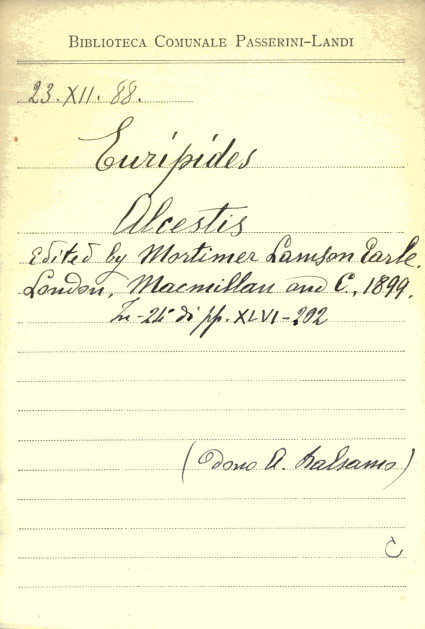 BIBLIOTECA COMUNALE PASSERINI-LANDI
23. XII. 88.
Euripides
Alcestis
Edited by Mortimer Lamson Earle.
London, Macmillan and C., 1899.
In-24° di pp. XLVI-202
(Dono A. Balsamo)
C